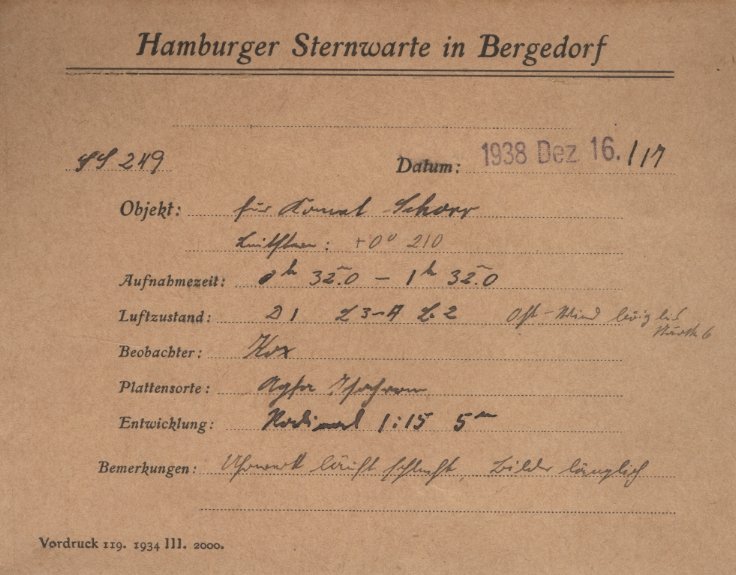 Hamburger Sternwarte in Bergedorf
SS 249 Datum: 1938 Dez 16./17
Objekt: für Komet Schorr
Leitstern: +0° 210
Aufnahmezeit: 0h 32.0 – 1h 32.0
Luftzustand: D 1 L 3-4 L. 2 Ost-Wind
Stärke 6
Beobachter: Kox
Plattensorte: Agfa Isochrom
Entwicklung: Rodinal 1:15 5m
Bemerkungen: Uhrwerk läuft schlecht, Bilder länglich
Vordruck 119. 1934 III. 2000.